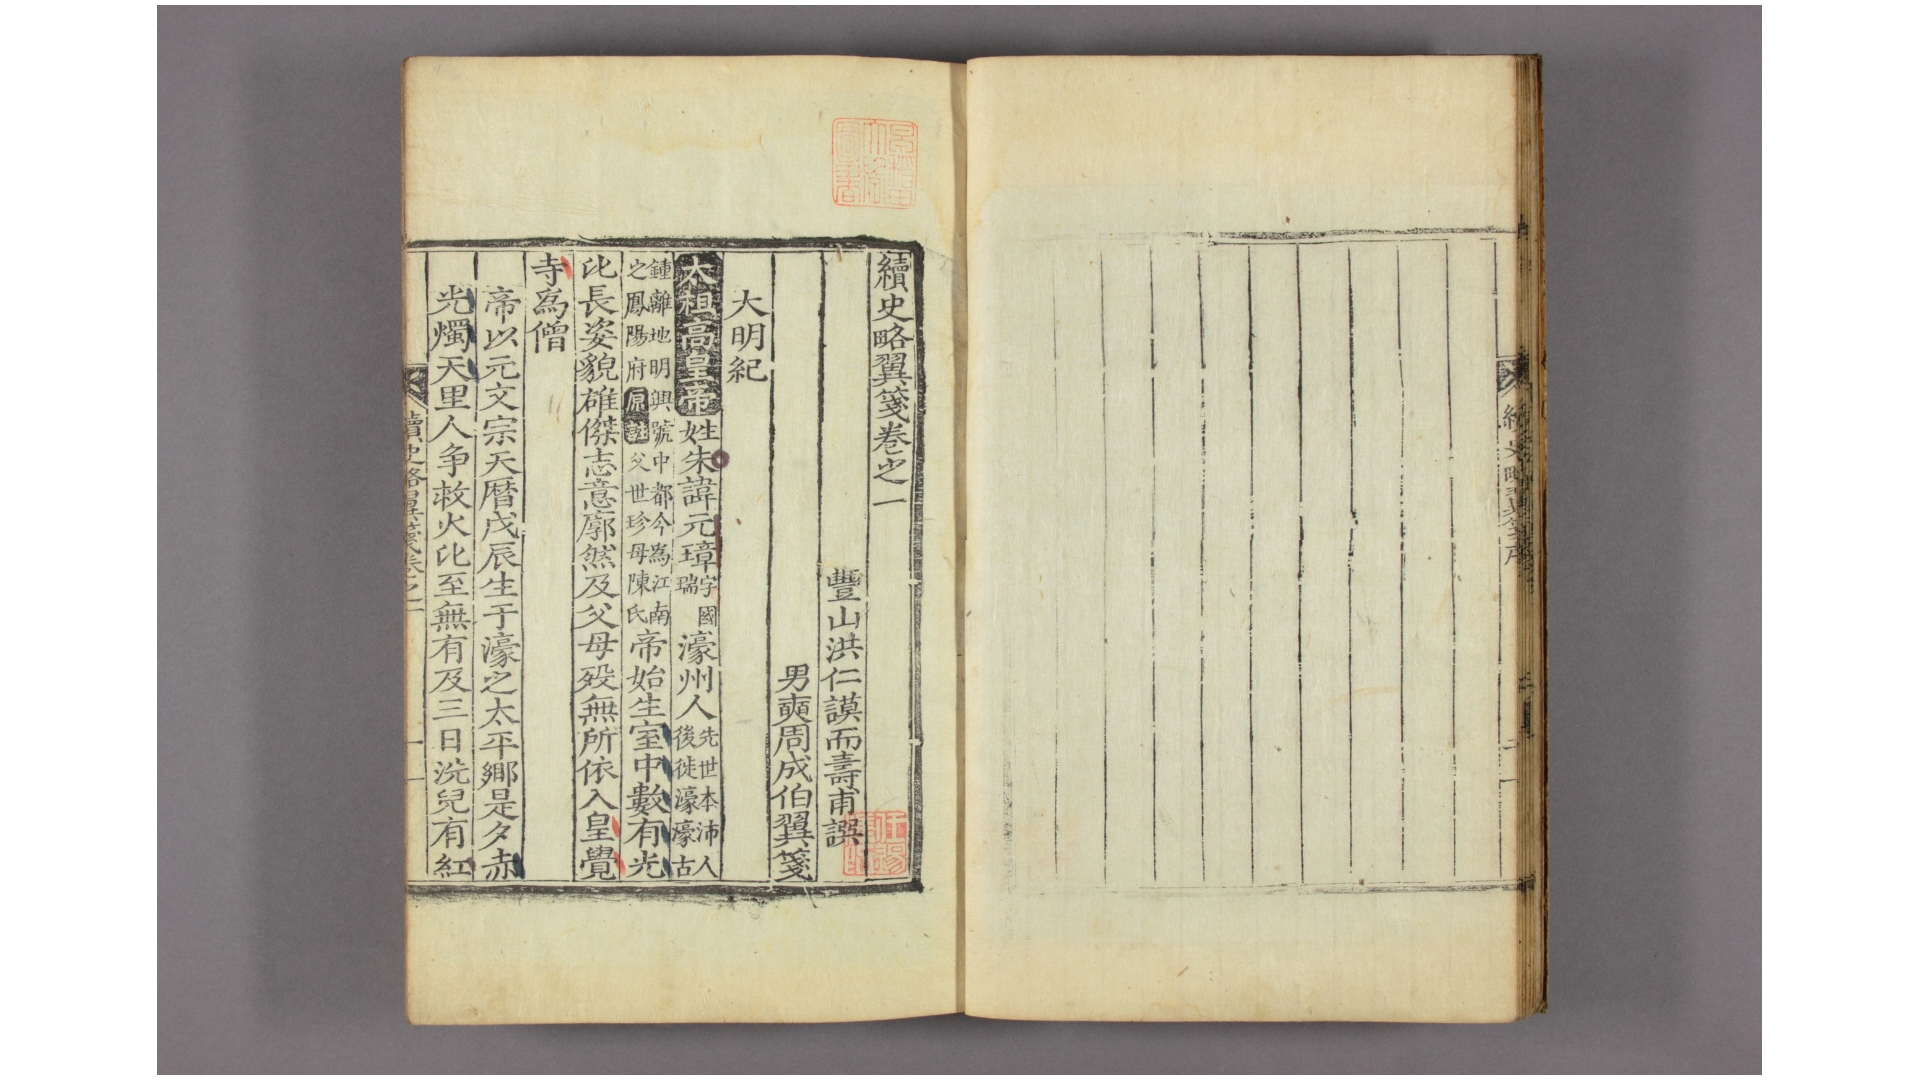 續史略翼箋卷之一
豐山洪仁謨而壽甫譔
男奭周成伯翼箋
大明紀
太祖高皇帝姓朱諱元璋字國瑞濠州人先世本沛人後徙濠濠古
鍾離地明興號中都今為江南之鳳陽府原註父世珍母陳氏帝始生室中數有光
比長姿貌雄傑志意廓然及父母歿無所依入皇覺
寺為僧
帝以元文宗天曆戊辰生于濠之太平鄉是夕赤
光燭天里人争救火比至無有及三日洗兒有紅
續史略翼箋卷之一
一